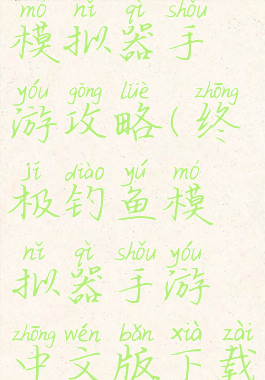 mó nǐ qì shǒu
模拟器手
yóu gōng lüè zhōng
游攻略(终
jí diào yú mó
极钓鱼模
nǐ qì shǒu yóu
拟器手游
zhōng wén bǎn xià zài
中文版下载